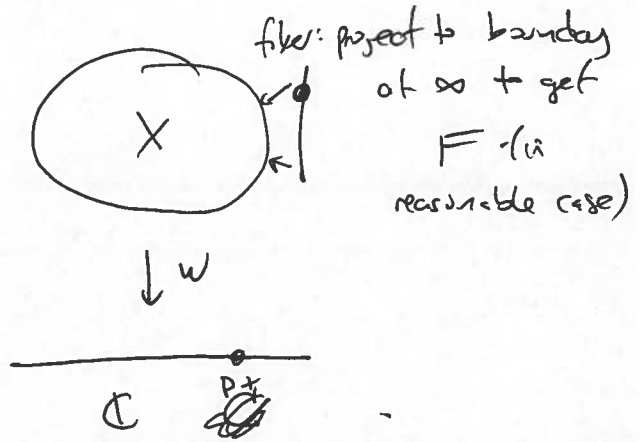 fiber: project to boundary
at ∞ to get
F (in
reasonable case)
X
↓ W
pt
ℂ